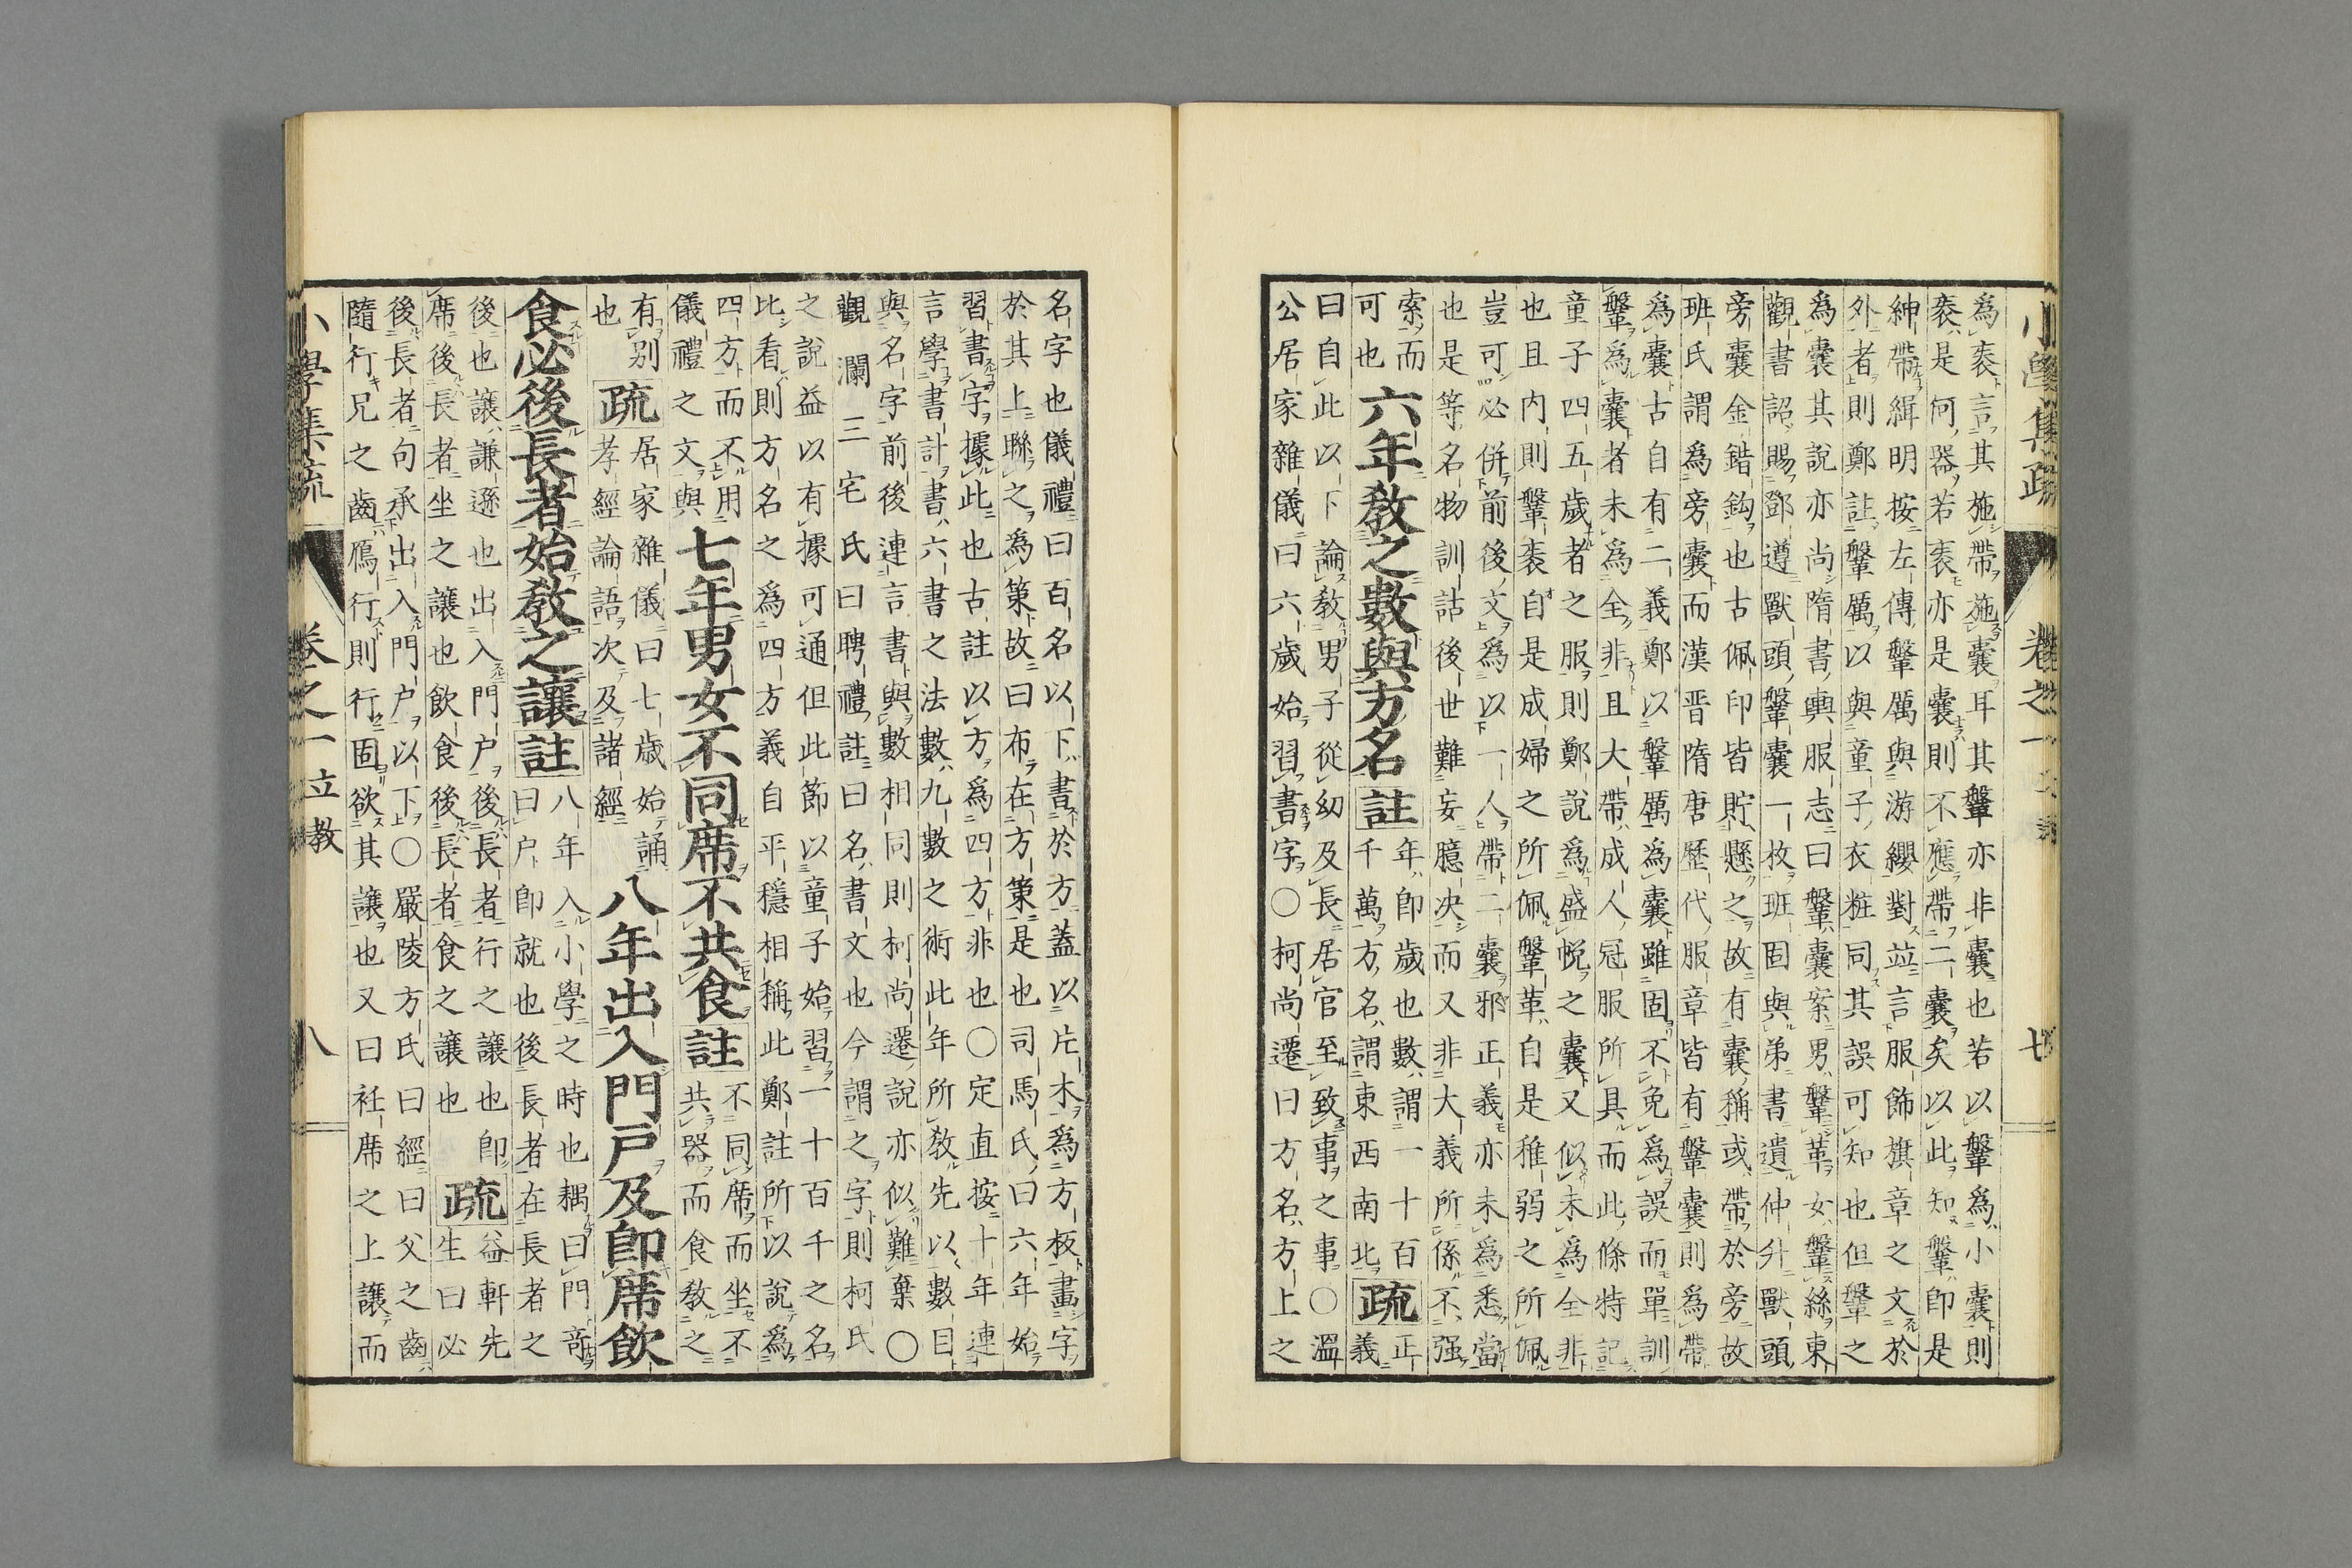 小學集疏 卷之一 七
爲袠言其施帶施囊耳其鞶亦非囊也若以鞶爲小囊則
袠是何器若袠亦是囊則不應帶二囊矣以此知鞶卽是
紳帶緝明按左傳鞶厲與游纓對竝言服飾旗章之文於
外者則鄭註鞶厲以與童子衣粧同其誤可知也但鞶之
爲囊其說亦尚隋書輿服志曰鞶囊案男鞶革女鞶絲東
觀書詔賜鄧遵獸頭鞶囊一枚班固與弟書遺仲升獸頭
旁囊金錯鈎也古佩印皆貯懸之故有囊稱或帶於旁故
班氏謂爲旁囊而漢晋隋唐歷代服章皆有鞶囊則爲帶
爲囊古自有二義鄭以鞶厲爲囊雖固不免爲誤而單訓
鞶爲囊者未爲全非且大帶成人冠服所具而此條特記
童子四五歲者之服則鄭說爲盛帨之囊又似未爲全非
也且内則鞶袠自是成婦之所佩鞶革自是稚弱之所佩
豈可必併前後文爲以一人帶二囊邪正義亦未爲悉當
也是等名物訓詁後世難妄臆决而又非大義所係不强
索而可也
六年敎之數與方名
註 年卽歲也數謂一十百千萬方名謂東西南北
疏 正義曰自此以下論敎男子從幼及長居官至致事之事○溫
公居家雜儀曰六歲始習書字○柯尚遷曰方名方上之
名字也儀禮曰百名以下書於方蓋以片木爲方板畫字
於其上聯之爲策故曰布在方策是也司馬氏曰六年始
習書字據此也古註以方爲四方非也○定直按十年連
言學書計書六書之法數九數之術此年所敎先以數目
與名字前後連言書與數相同則柯尚遷說亦似難棄○
觀瀾三宅氏曰聘禮註曰名書文也今謂之字則柯氏
之說益以有據可通但此節以童子始習一十百千之名
比看則方名之爲四方義自平穩相稱此鄭註所以說爲
四方而不用
儀禮之文與
七年男女不同席不共食
註 不同席而坐不
共器而食敎之
有別也
疏 居家雜儀曰七歲始誦
孝經論語次及諸經
八年出入門戸及卽席飮
食必後長者始敎之讓
註 八年入小學之時也耦曰門竒
曰户卽就也後長者在長者之
後也讓謙遜也出入門户後長者行之讓也卽
席後長者坐之讓也飮食後長者食之讓也
疏 益軒先
生曰必
後長者句承出入門户以下○嚴陵方氏曰經曰父之齒
隨行兄之齒鴈行則行固欲其讓也又曰衽席之上讓而
小學集疏 卷之一 立教 八